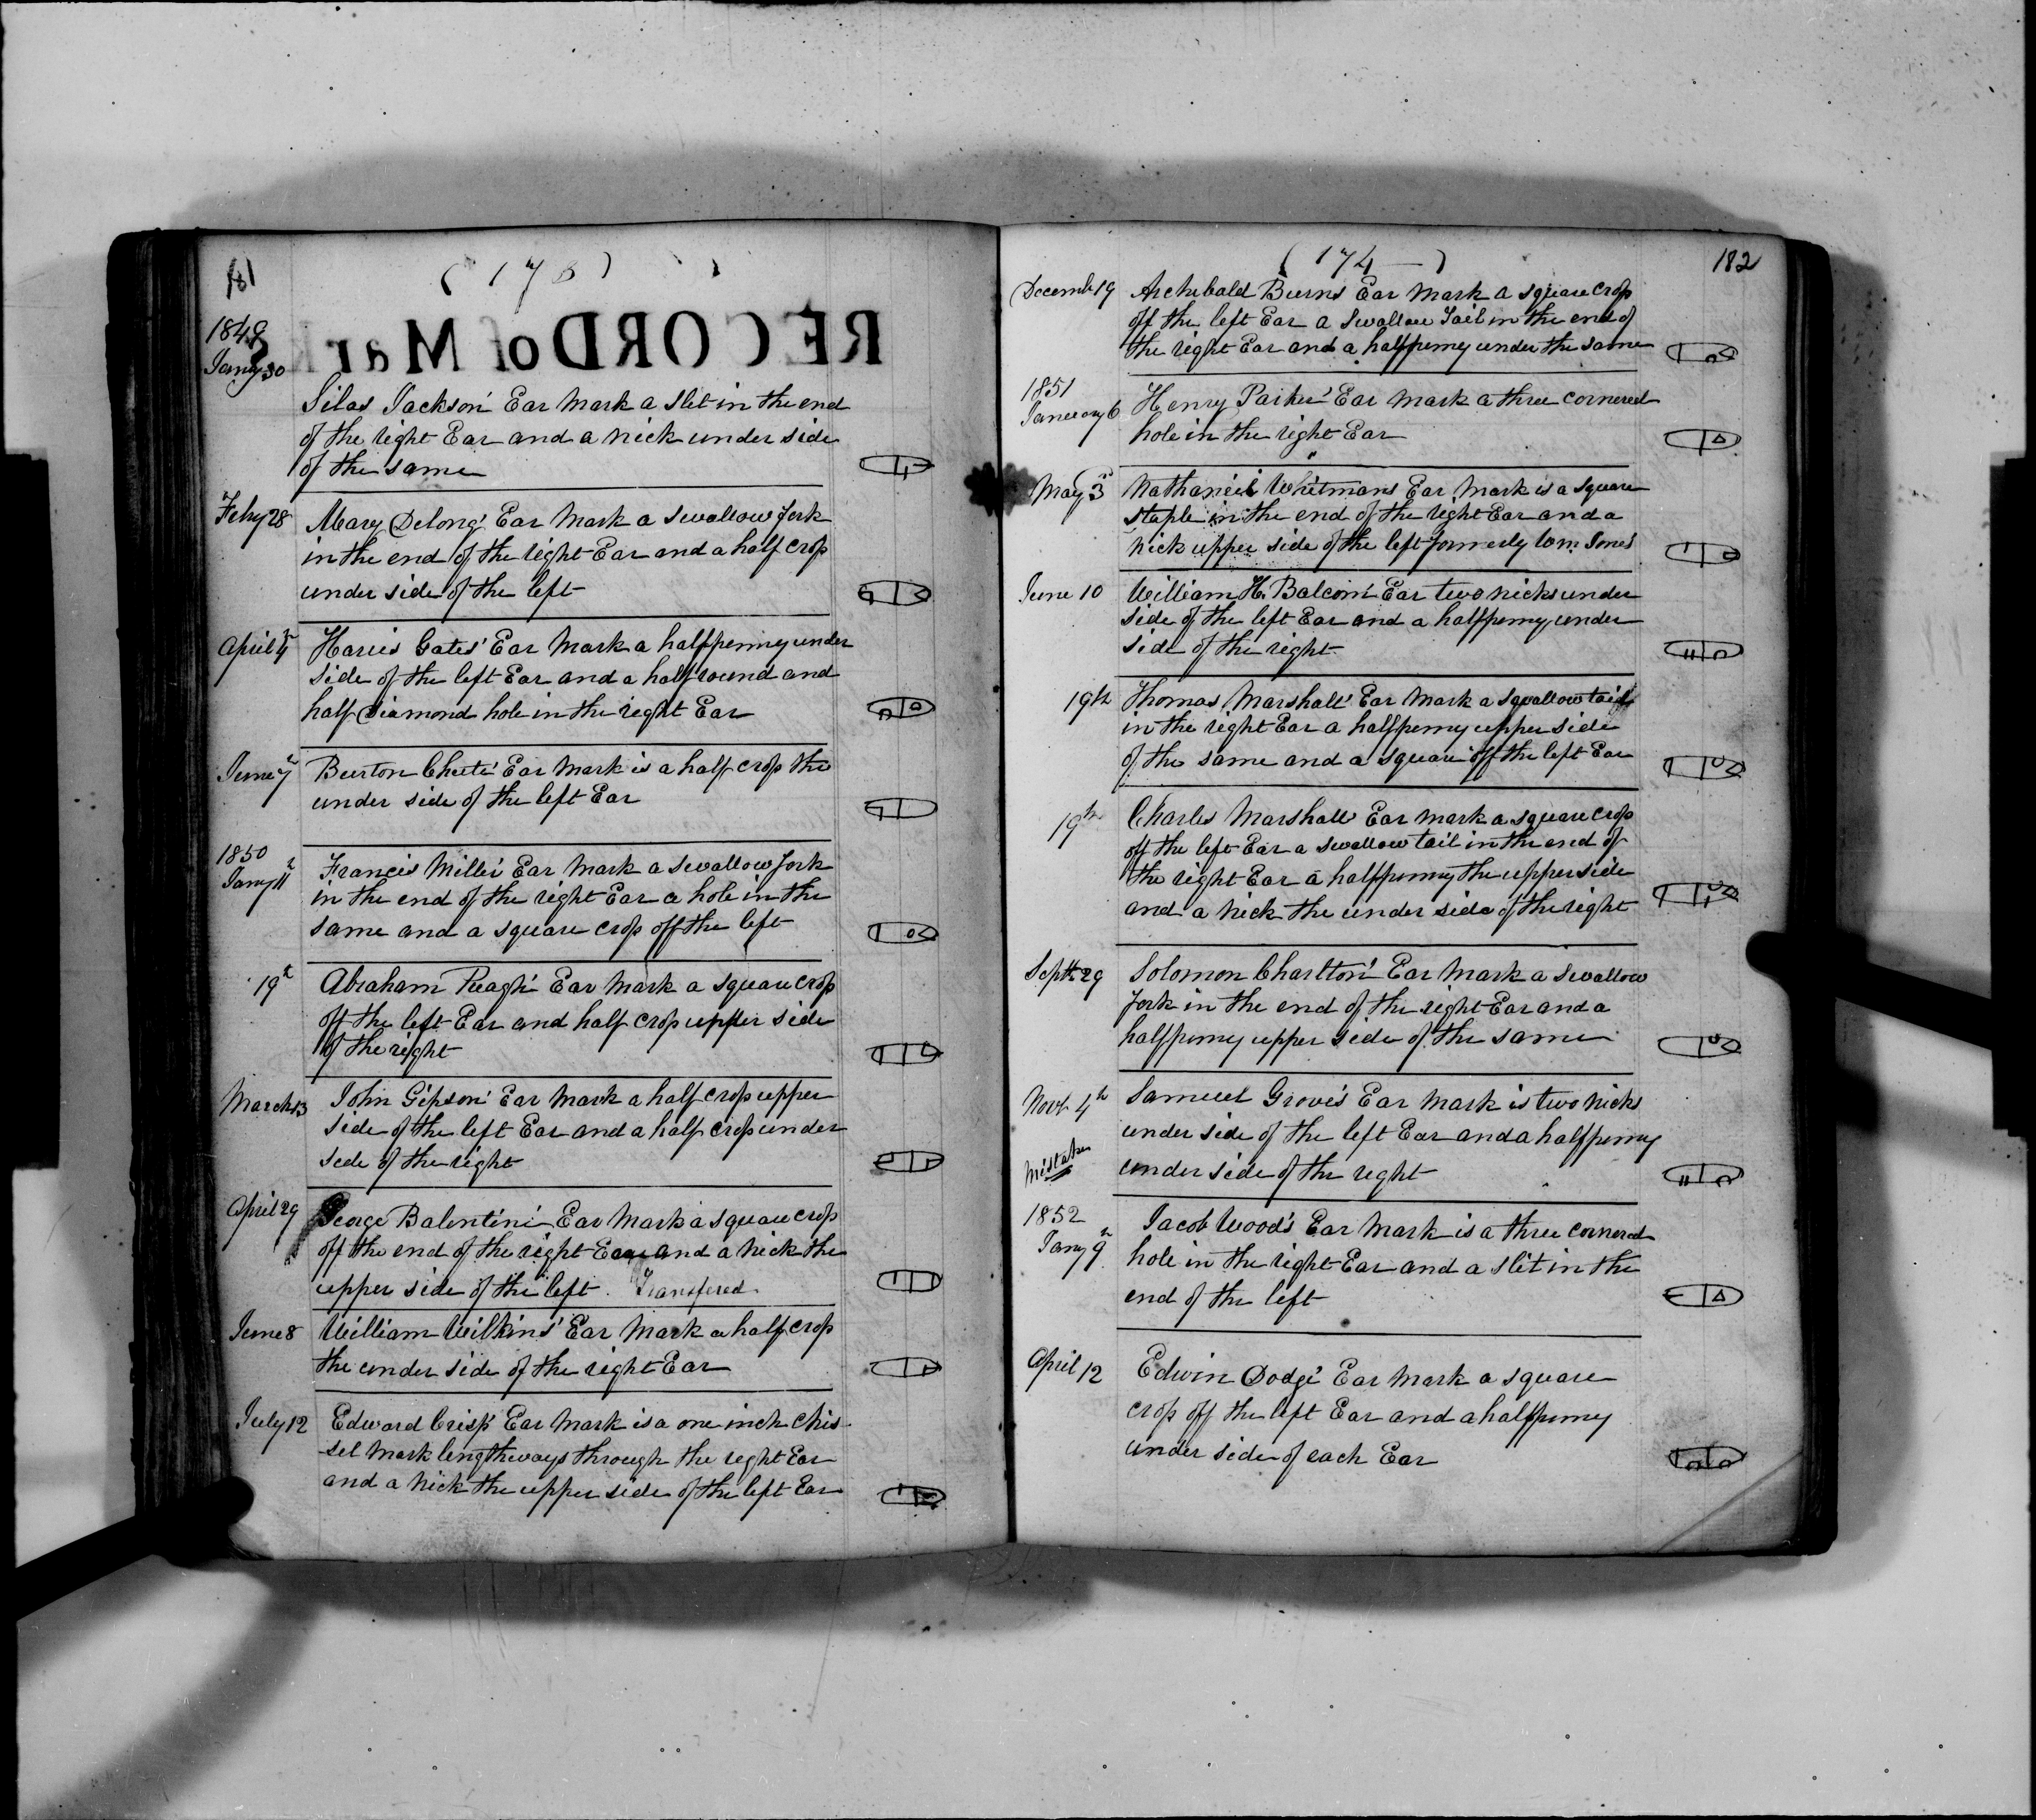 181
( 173 )
RECORD of Marks
1849
Jany 30
Silas Jackson' Ear Mark a slit in the end
of the right Ear and a nick under side
of the same
Feby 28
Mary Delong' Ear Mark a swallow fork
in the end of the right Ear and a half crop
under side of the left
April 4th
Harris Gates' Ear Mark a halfpenny under
side of the left Ear and a half round and
half Diamond hole in the right Ear
June 7th
Burton Chute' Ear Mark is a half crop the
under side of the left Ear
1850
Jany 11th
Francis Miller' Ear Mark a swallow fork
in the end of the right Ear a hole in the
same and a square crop off the left
19th
Abraham Ear Mark a square crop
off the left Ear and half crop upper side
of the right
March 13
John Gipson' Ear Mark a half crop upper
side of the left Ear and a half crop under
side of the right
April 29
George Balentine' Ear Mark a square crop
off the end of the right Ear and a nick the
upper side of the left. Transfered
June 8
William Wilkins' Ear Mark a half crop
the under side of the right Ear
July 12
Edward Crisp' Ear Mark is a one inch chis-
-sel Mark lengthways through the right Ear
and a nick the upper side of the left Ear
( 174 )
182
Decembr 19
Archibald Burns Ear Mark a square crop
off the left Ear a Swallow Tail in the end of
the right Ear and a halfpenny under the same
1851
January 6
Henry Parker' Ear Mark a three cornered
hole in the right Ear
May 3d
Nathaniel Whitmans Ear Mark is a square
staple in the end of the right Ear and a
nick upper side of the left formerly Wm Jones'
June 10
William H. Balcom' Ear two nicks under
side of the left Ear and a halfpenny under
side of the right.
19th
Thomas Marshall' Ear Mark a swallow tail
in the right Ear a halfpenny upper side
of the same and a square off the left Ear
19th
Charles Marshall' Ear Mark a square crop
off the left Ear a swallow tail in the end of
the right Ear a halfpenny the upper side
and a nick the under side of the right
Septr 29
Solomon Charlton' Ear Mark a swallow
fork in the end of the right Ear and a
halfpenny upper side of the same
Novr 4th
Samuel Grove's Ear Mark is two nicks
under side of the left Ear and a halfpenny
Mistake
under side of the right
1852
Jany 9th
Jacob Wood's Ear Mark is a three cornered
hole in the right Ear and a slit in the
end of the left
April 12
Edwin Dodge' Ear Mark a square
crop off the left Ear and a halfpenny
under side of each Ear